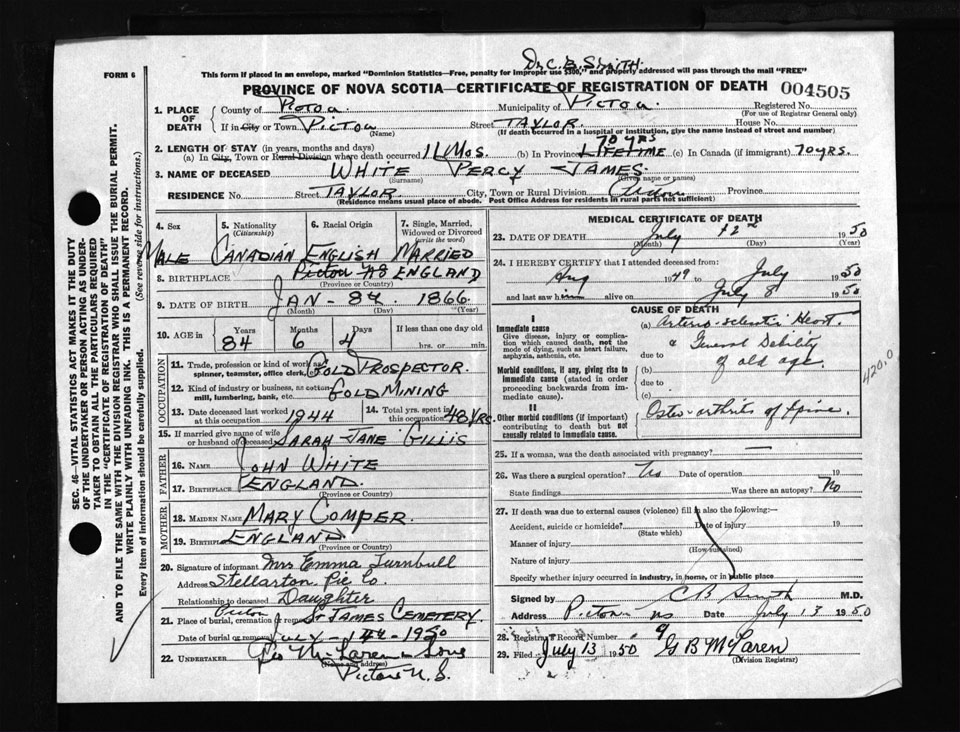 Dr. C. B. Smith.
FORM 6
This form if placed in an envelope, marked "Dominion Statistics—Free, penalty for improper use $300," and properly addressed will pass through the mail "FREE"
PROVINCE OF NOVA SCOTIA—CERTIFICATE OF REGISTRATION OF DEATH 004505
1. PLACE OF DEATH
County of Pictou Municipality of Pictou Registered No.
(For use of Registrar General only)
If in City or Town Pictou Street Taylor. House No.
(Name) (If death occurred in a hospital or institution, give the name instead of street and number)
2. LENGTH OF STAY (in years, months and days) 70 yrs
(a) In City, Town or Rural Division where death occurred 11 Mos. (b) In Province Lifetime (c) In Canada (if immigrant) 70 yrs.
3. NAME OF DECEASED White Percy James.
(Surname) (Given name or names)
RESIDENCE No. Street Taylor City, Town or Rural Division Pictou Province
(Residence means usual place of abode. Post Office Address for residents in rural parts not sufficient)
SEC. 46—VITAL STATISTICS ACT MAKES IT THE DUTY OF THE UNDERTAKER OR PERSON ACTING AS UNDERTAKER TO OBTAIN ALL THE PARTICULARS REQUIRED IN THE "CERTIFICATE OF REGISTRATION OF DEATH" AND TO FILE THE SAME WITH THE DIVISION REGISTRAR WHO SHALL ISSUE THE BURIAL PERMIT.
WRITE PLAINLY WITH UNFADING INK. THIS IS A PERMANENT RECORD.
Every item of information should be carefully supplied. (See reverse side for instructions.)
4. Sex 5. Nationality (Citizenship) 6. Racial Origin 7. Single, Married, Widowed or Divorced (write the word)
Male Canadian English Married
8. BIRTHPLACE Pictou NS England
(Province or Country)
9. DATE OF BIRTH Jan - 8th. 1866.
(Month) (Day) (Year)
10. AGE in Years Months Days If less than one day old
84 6 4 hrs. or min.
11. Trade, profession or kind of work as spinner, teamster, office clerk, Gold Prospector.
12. Kind of industry or business, as cotton mill, lumbering, bank, etc. Gold Mining
13. Date deceased last worked at this occupation 1944 14. Total yrs. spent in this occupation 48 yrs.
15. If married give name of wife or husband of deceased Sarah Jane Gillis
FATHER
16. NAME John White
17. BIRTHPLACE England.
(Province or Country)
MOTHER
18. MAIDEN NAME Mary Comper.
19. BIRTHPLACE England
(Province or Country)
20. Signature of informant Mrs Emma Turnbull
Address Stellarton Pic Co.
Relationship to deceased Daughter
21. Place of burial, cremation or removal Pictou St James Cemetery.
Date of burial or removal July - 14 - 1950
22. UNDERTAKER Geo McLaren & Sons
(Name and address)
Pictou N.S.
MEDICAL CERTIFICATE OF DEATH
23. DATE OF DEATH July 12th 1950
(Month) (Day) (Year)
24. I HEREBY CERTIFY that I attended deceased from:
Aug 1949 to July 1950
and last saw him alive on July 8 1950
CAUSE OF DEATH
I
Immediate cause
Give disease, injury or complication which caused death, not the mode of dying, such as heart failure, asphyxia, asthenia, etc.
(a) Arterio-sclerotic Heart.
due to & General Debility
(b) of old age.
Morbid conditions, if any, giving rise to immediate cause (stated in order proceeding backwards from immediate cause).
due to
(c)
420.0
II
Other morbid conditions (if important) contributing to death but not causally related to immediate cause.
Osteo-arthritis of Spine.
25. If a woman, was the death associated with pregnancy? —
26. Was there a surgical operation? No Date of operation 19
State findings Was there an autopsy? No
27. If death was due to external causes (violence) fill in also the following:—
Accident, suicide or homicide? Date of injury 19
(State which)
Manner of injury
(How sustained)
Nature of injury
Specify whether injury occurred in industry, in home, or in public place
Signed by C B Smith M.D.
Address Pictou NS Date July 13 1950
28. Registrar's Record Number 9
29. Filed July 13 1950 G B McLaren
(Division Registrar)